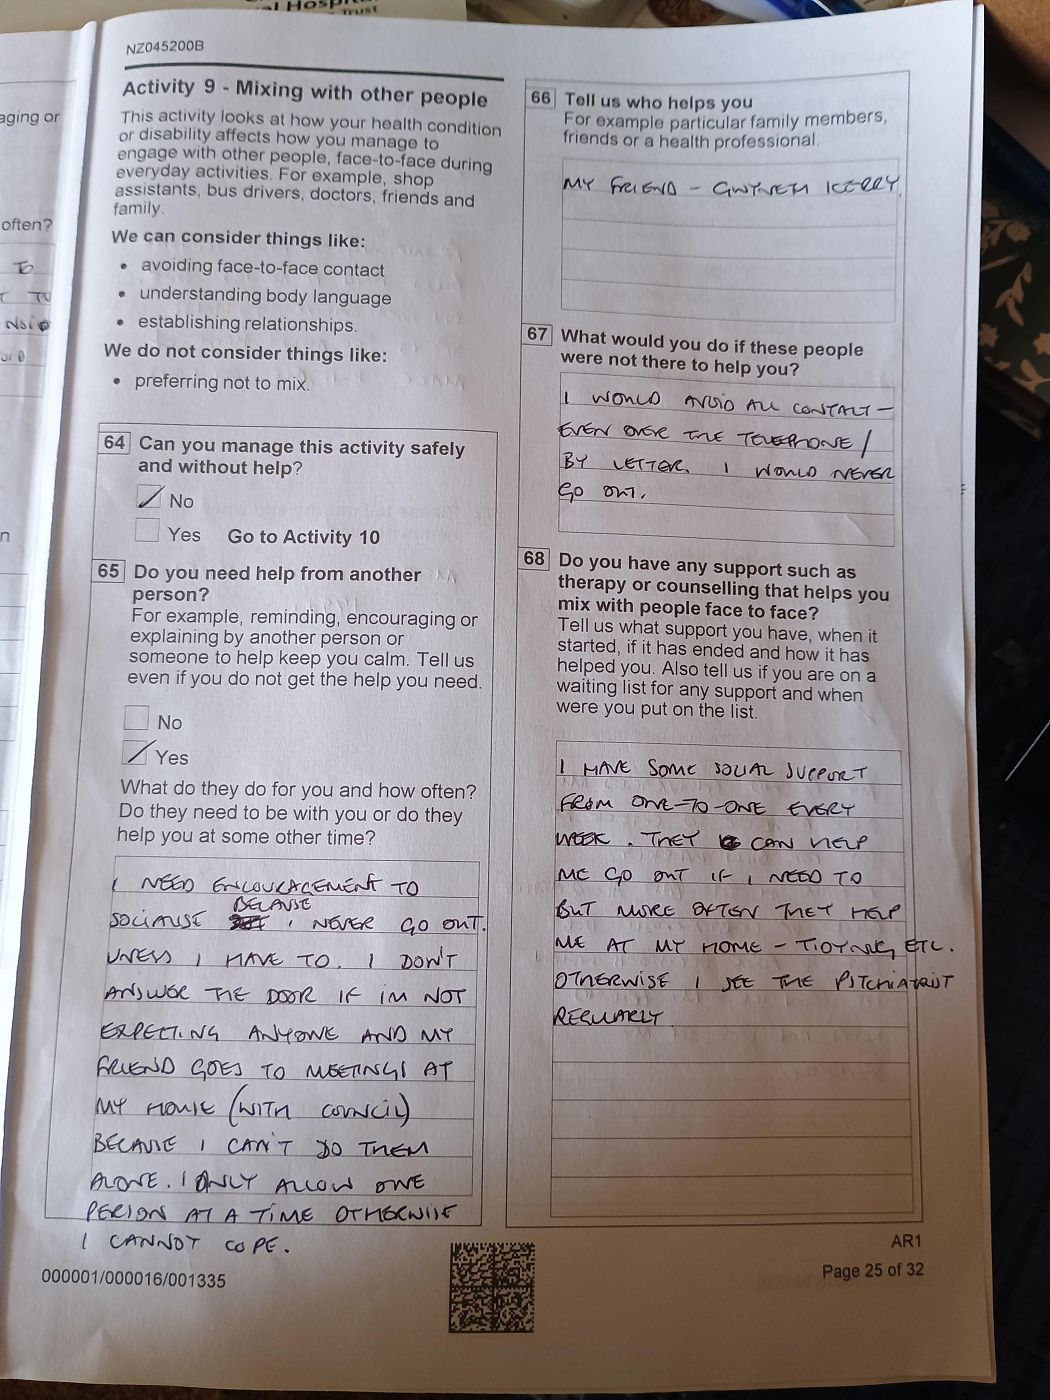 al Hospital
Trust
aging or
often?
TO
T TO
n
NZ045200B
Activity 9 - Mixing with other people
This activity looks at how your health condition
or disability affects how you manage to
engage with other people, face-to-face during
everyday activities. For example, shop
assistants, bus drivers, doctors, friends and
family.
We can consider things like:
• avoiding face-to-face contact
• understanding body language
• establishing relationships.
We do not consider things like:
• preferring not to mix.
64 Can you manage this activity safely
and without help?
No
Yes Go to Activity 10
65 Do you need help from another
person?
For example, reminding, encouraging or
explaining by another person or
someone to help keep you calm. Tell us
even if you do not get the help you need.
No
Yes
What do they do for you and how often?
Do they need to be with you or do they
help you at some other time?
I NEED ENCOURAGEMENT TO
BECAUSE
SOCIALISE I NEVER GO OUT.
UNLESS I HAVE TO. I DON'T
ANSWER THE DOOR IF IM NOT
EXPECTING ANYONE AND MY
FRIEND GOES TO MEETINGS AT
MY HOUSE (WITH COUNCIL)
BECAUSE I CAN'T DO THEM
ALONE. I ONLY ALLOW ONE
PERSON AT A TIME OTHERWISE
I CANNOT COPE.
66 Tell us who helps you
For example particular family members,
friends or a health professional.
MY FRIEND - GWYNETH KERRY.
67 What would you do if these people
were not there to help you?
I WOULD AVOID ALL CONTACT -
EVEN OVER THE TELEPHONE /
BY LETTER. I WOULD NEVER
GO OUT.
68 Do you have any support such as
therapy or counselling that helps you
mix with people face to face?
Tell us what support you have, when it
started, if it has ended and how it has
helped you. Also tell us if you are on a
waiting list for any support and when
were you put on the list.
I HAVE SOME SOCIAL SUPPORT
FROM ONE-TO-ONE EVERY
WEEK. THEY CAN HELP
ME GO OUT IF I NEED TO
BUT MORE OFTEN THEY HELP
ME AT MY HOME - TIDYING, ETC.
OTHERWISE I SEE THE PSYCHIATRIST
REGULARLY.
000001/000016/001335
AR1
Page 25 of 32